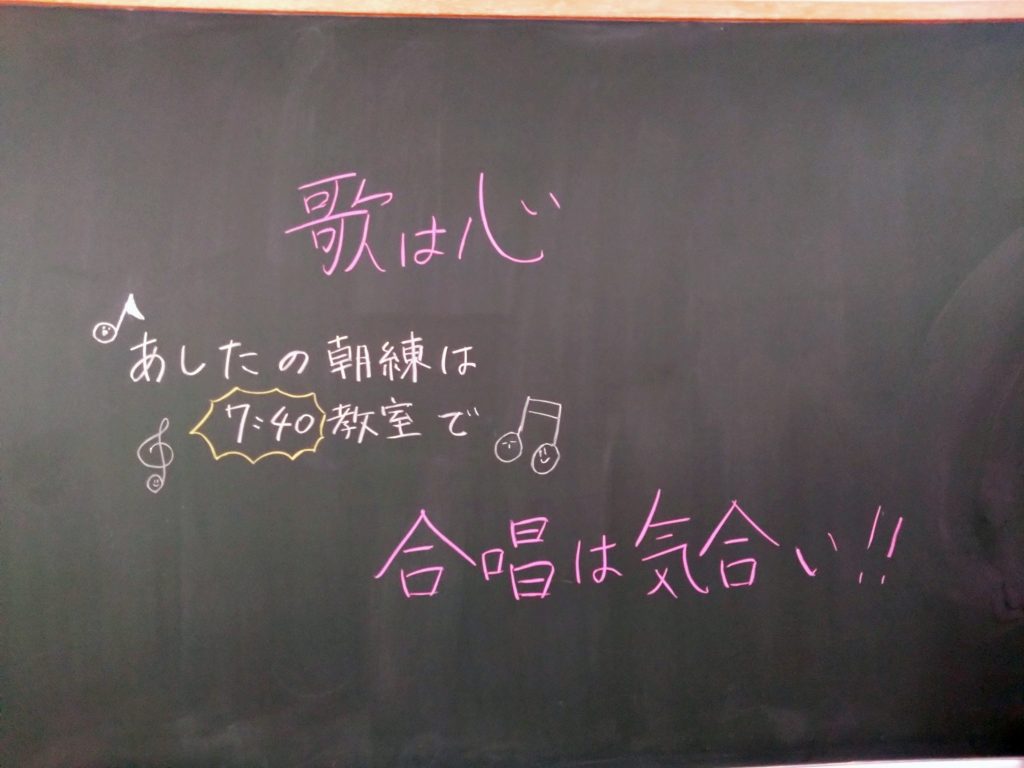 歌は心
あしたの朝練は
7:40 教室で
合唱は気合い!!